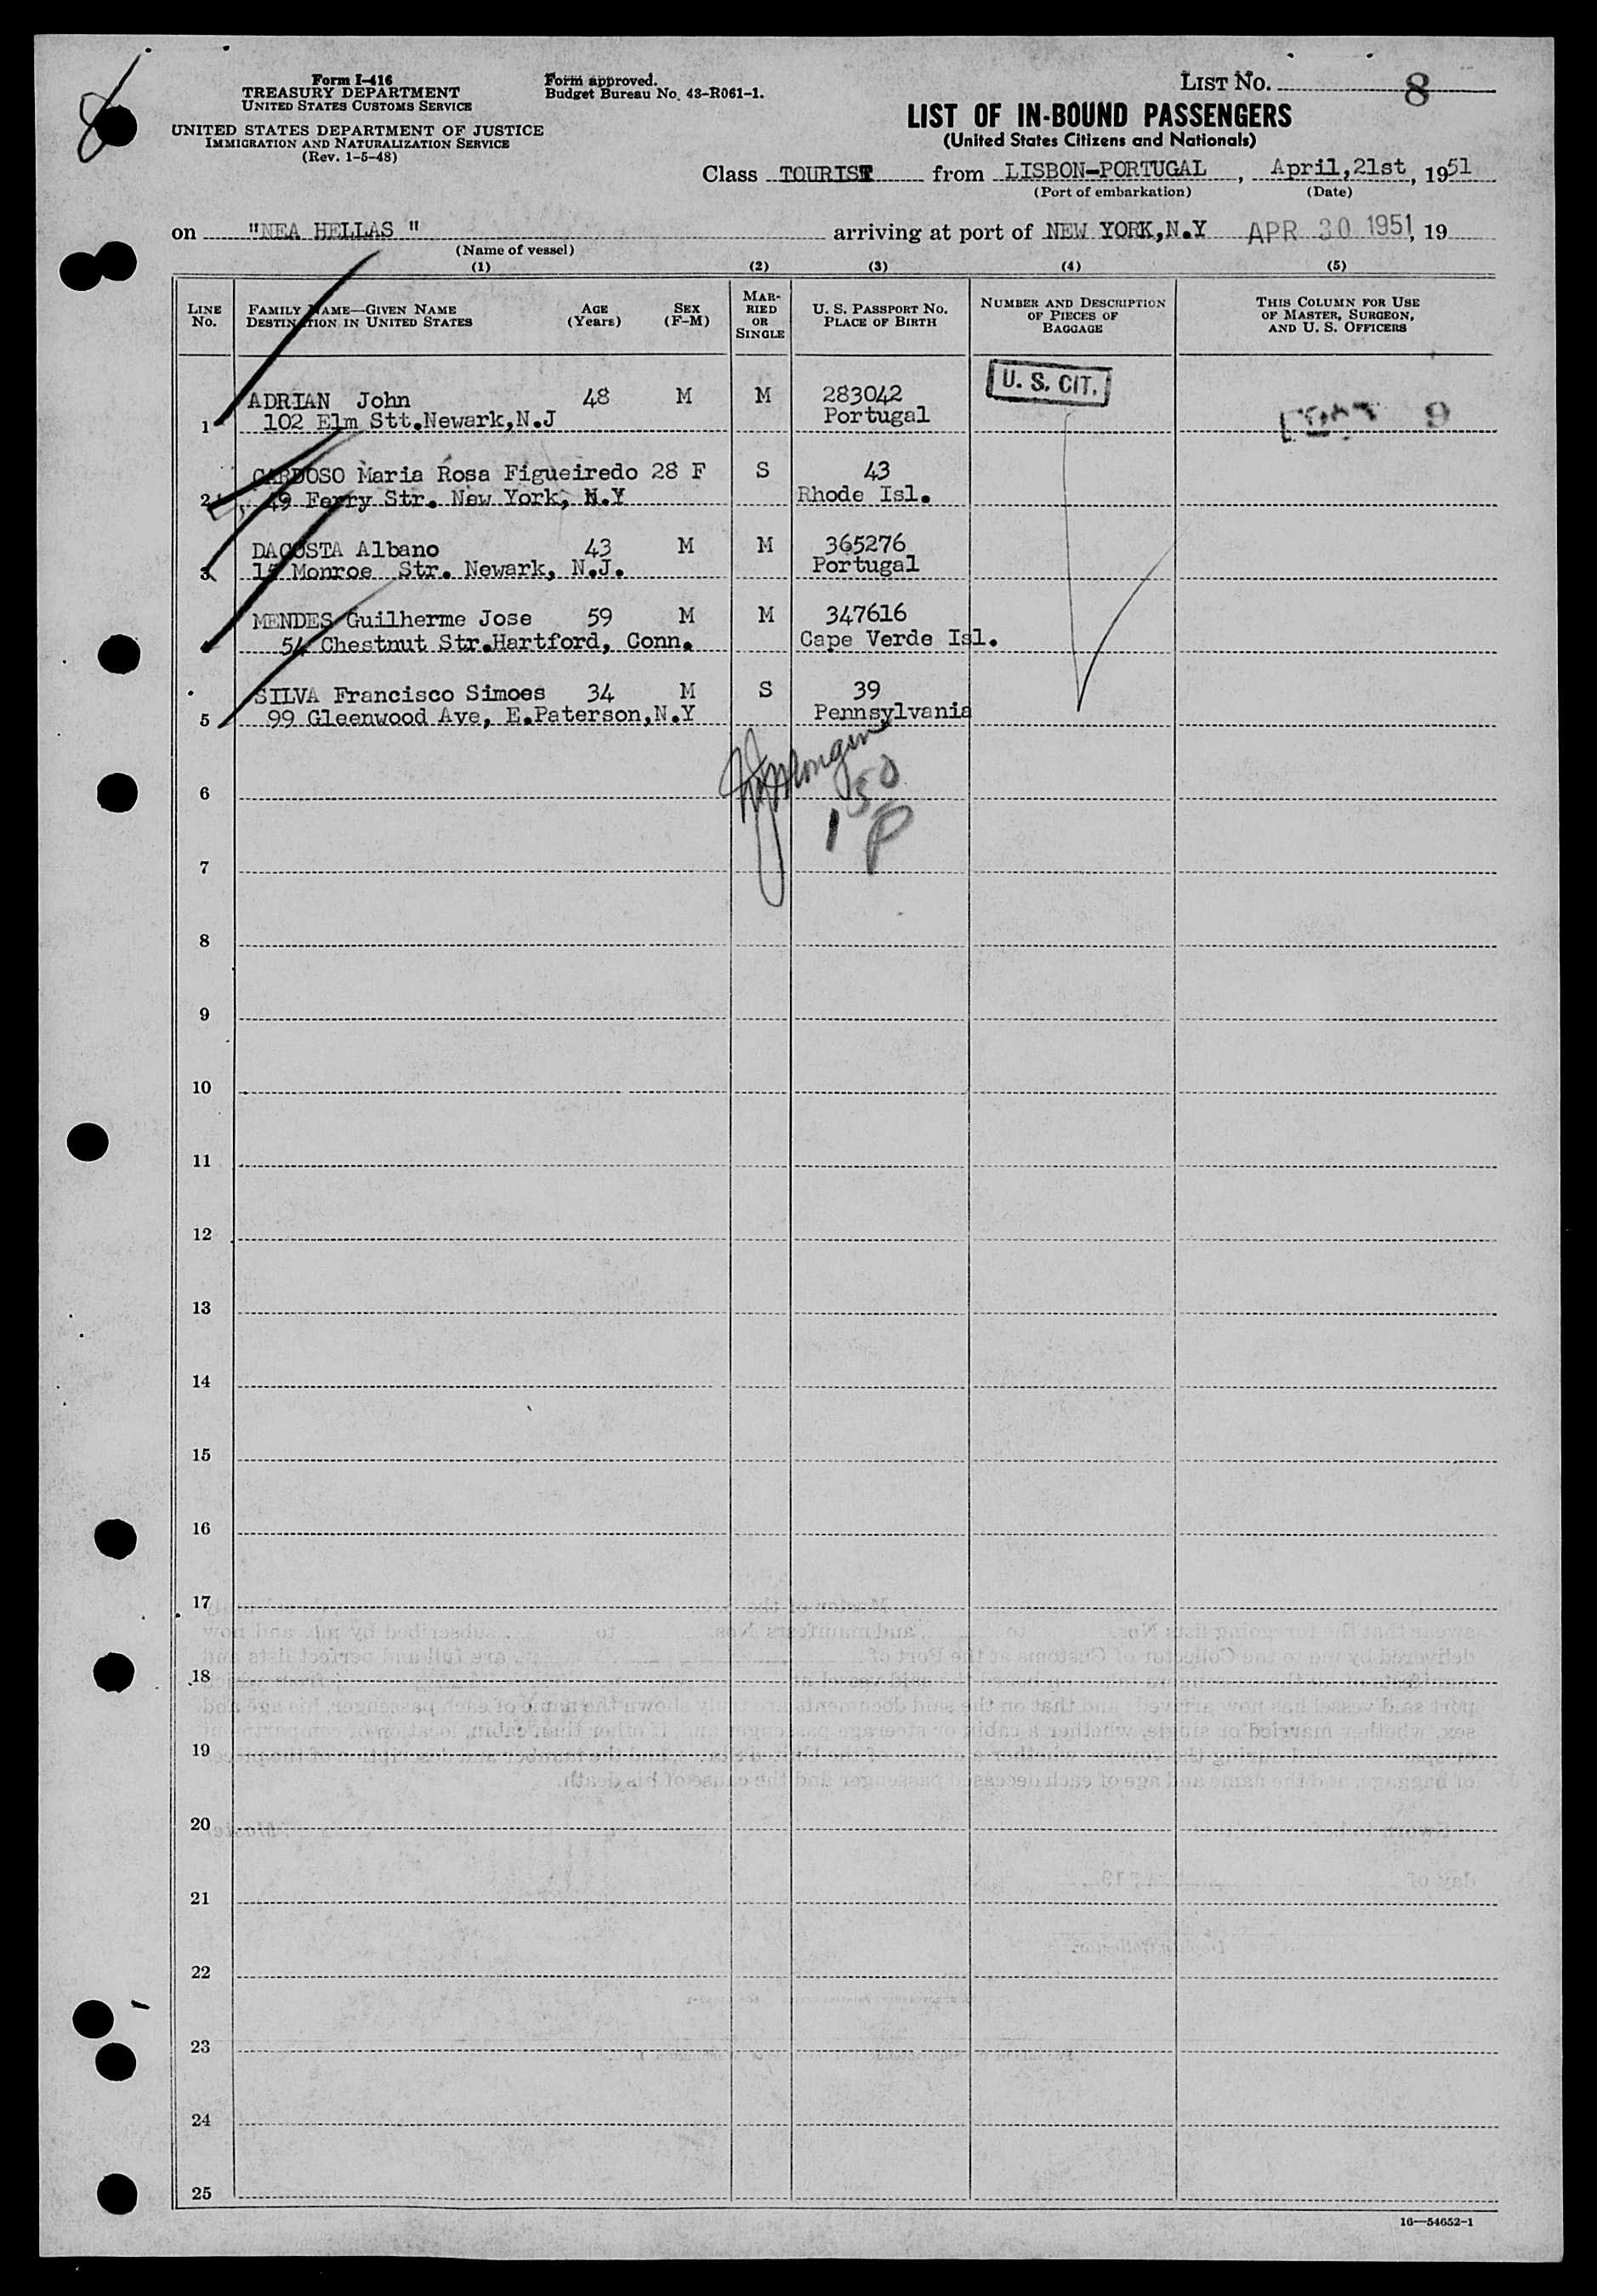 Form I-416
TREASURY DEPARTMENT
UNITED STATES CUSTOMS SERVICE
UNITED STATES DEPARTMENT OF JUSTICE
IMMIGRATION AND NATURALIZATION SERVICE
(Rev. 1-5-48)
Form approved.
Budget Bureau No. 43-R061-1.
LIST NO. 8
LIST OF IN-BOUND PASSENGERS
(United States Citizens and Nationals)
Class TOURIST from LISBON-PORTUGAL, April,21st, 1951
(Port of embarkation) (Date)
on "NEA HELLAS " arriving at port of NEW YORK,N.Y APR 30 1951, 19
(Name of vessel)
(1) (2) (3) (4) (5)
LINE No. FAMILY NAME—GIVEN NAME DESTINATION IN UNITED STATES AGE (Years) SEX (F-M) MARRIED OR SINGLE U. S. PASSPORT NO. PLACE OF BIRTH NUMBER AND DESCRIPTION OF PIECES OF BAGGAGE THIS COLUMN FOR USE OF MASTER, SURGEON, AND U. S. OFFICERS
ADRIAN John 48 M M 283042 U. S. CIT.
1 102 Elm Stt.Newark,N.J Portugal 9
CARDOSO Maria Rosa Figueiredo 28 F S 43
2 49 Ferry Str. New York, N.Y Rhode Isl.
DACOSTA Albano 43 M M 365276
3 15 Monroe Str. Newark, N.J. Portugal
MENDES Guilherme Jose 59 M M 347616
54 Chestnut Str.Hartford, Conn. Cape Verde Isl.
SILVA Francisco Simoes 34 M S 39
5 99 Gleenwood Ave, E.Paterson,N.Y Pennsylvania
6
150
P
7
8
9
10
11
12
13
14
15
16
17
18
19
20
21
22
23
24
25
16—54652-1